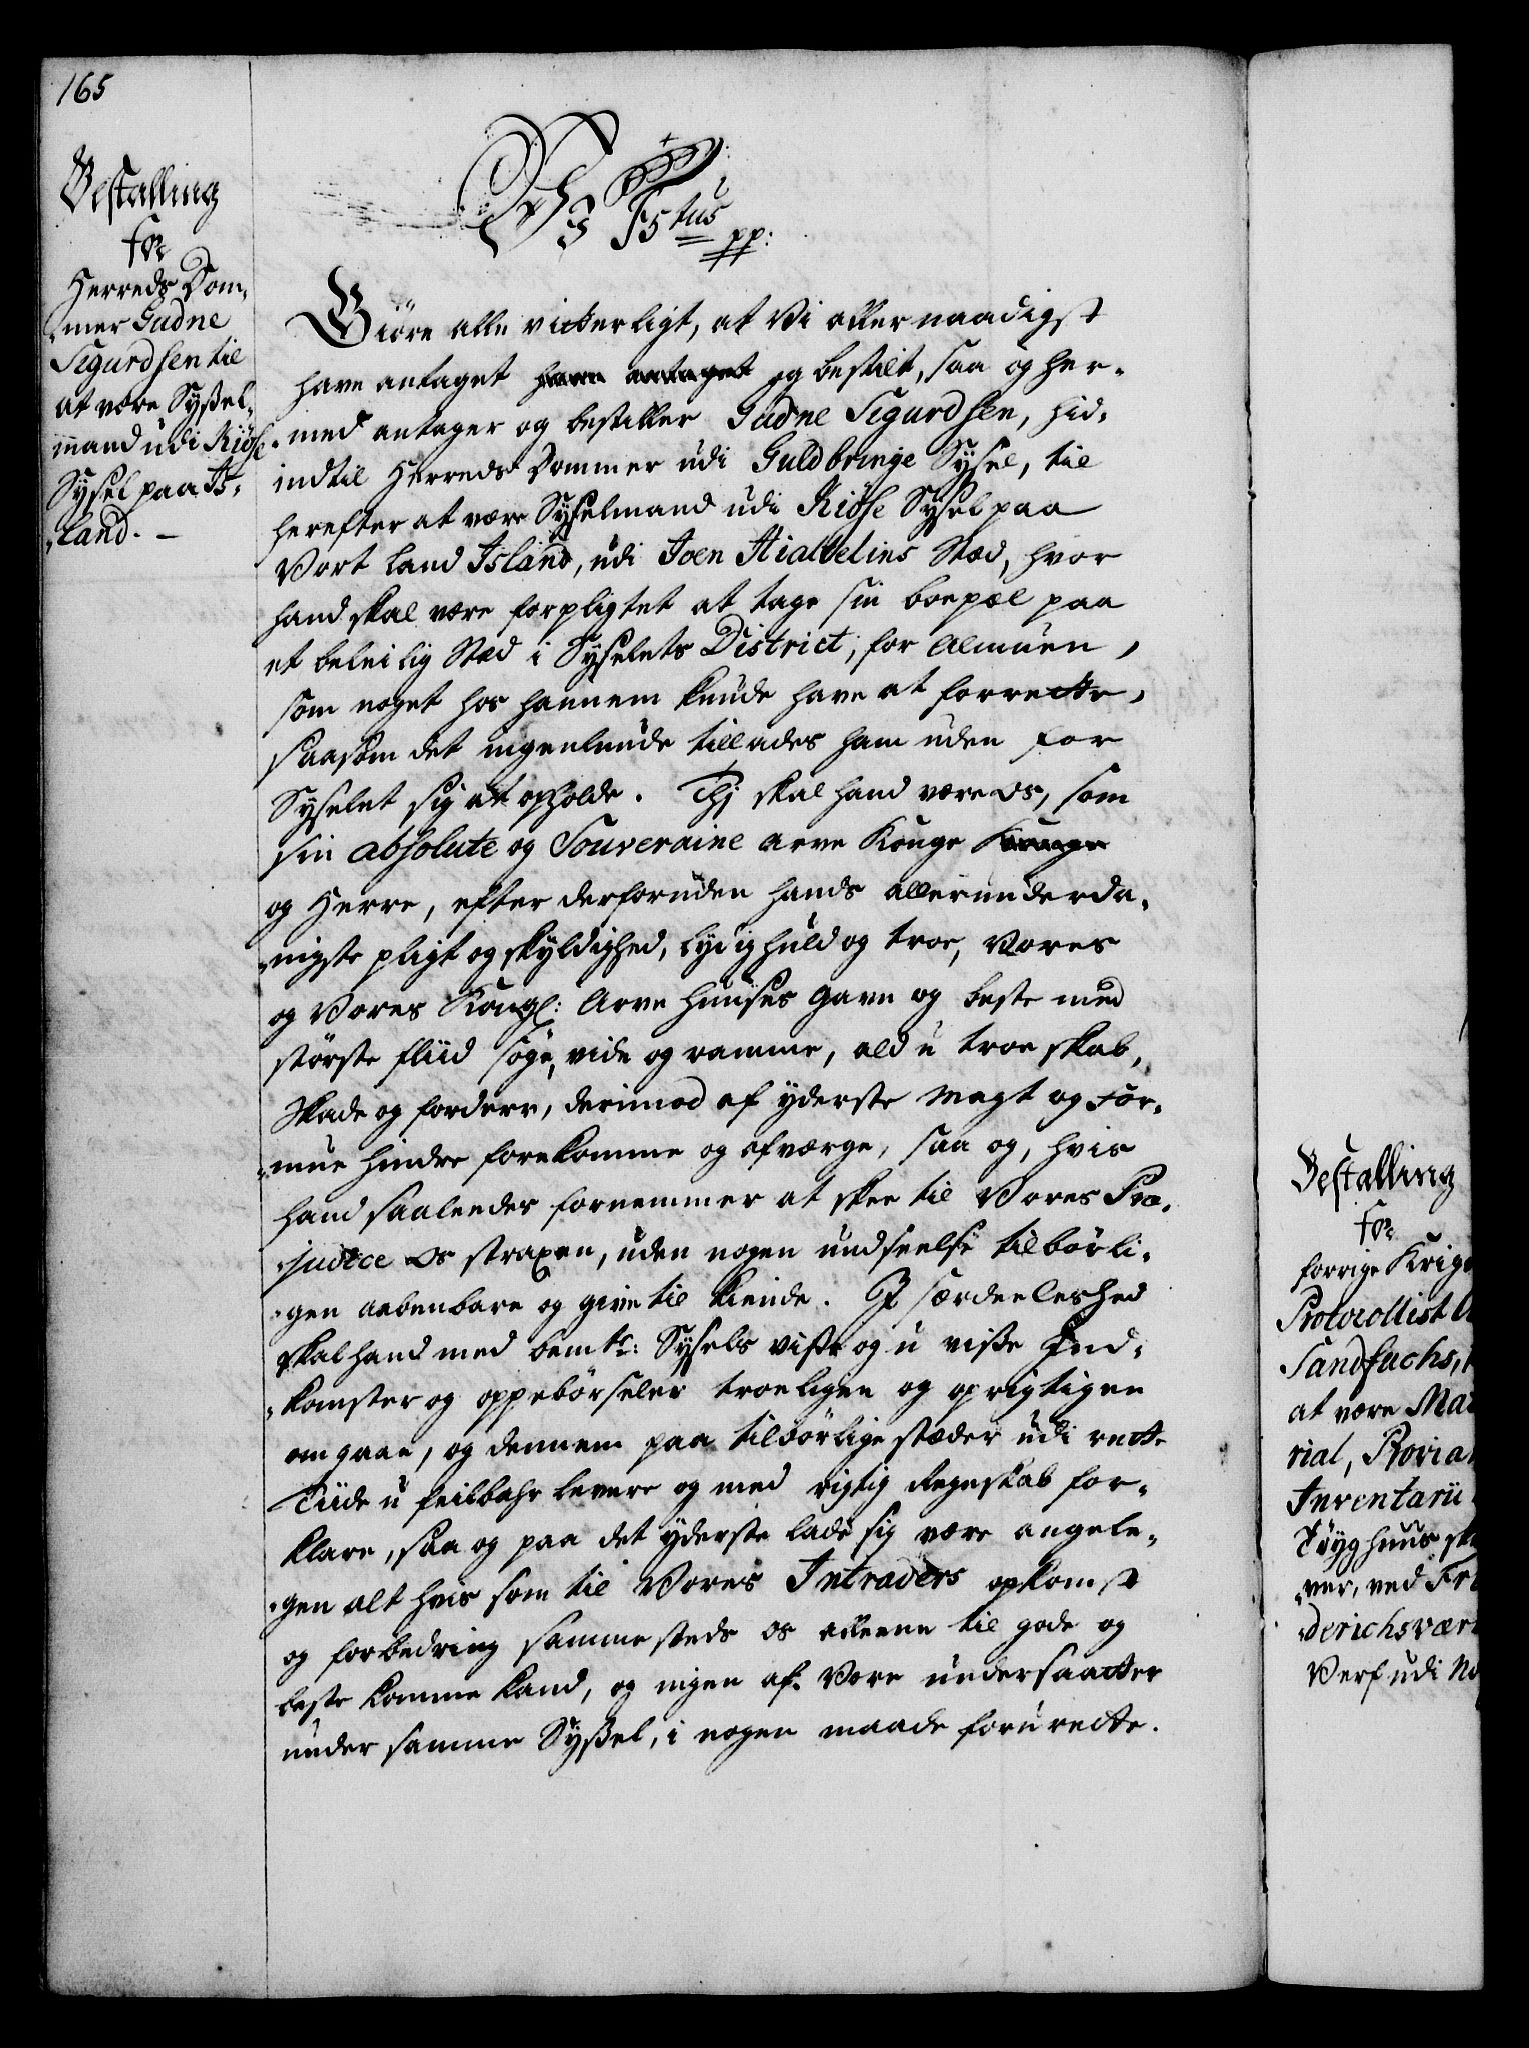 165
Bestalling
for
Herreds Dom„
„mer Gudne
Sigurdsen til
at være Syßel„
mand udi Kiöse
Sysel paa Is„
„land. —
Ws F5tus
pp:
Giöre alle vitterligt, at Vi allernaadigst
have antaget have antaget og bestilt, saa og her„
„med antager og bestiller Gudne Sigurdsen, hid„
indtil Herreds Dommer udi Guldbringe Sysel, til
herefter at være Syselmand udi Kiöse Sysel paa
Vort Land Island, udi Joen Hialtelins Stæd, hvor
hand skal være forpligtet at tage sin boepæl paa
et beleilig Stæd i Syselets District, for Almuen,
som noget hos hannem kunde have at forrette,
saasom det ingenlunde tillades ham uden for
Syselet sig at opholde. Thj skal hand være os, som
sin absolute og Souveraine Arve Konge Konge
og Herre, efter derforuden hands allerunderda„
„nigste pligt og skyldighed, lydig huld og troe, Vores
og Vores Kongl: Arve Huuses gavn og beste med
störste fliid söge, vide og ramme, ald u troeskab,
Skade og forderv, derimod af yderste Magt og For„
„mue hindre forekomme og afværge, saa og, hvis
hand saaleedes fornemmer at skee til Vores Præ„
„judice Os straxen, uden nogen undseelse tilbörli„
„gen aabenbare og give til kiende. I særdeeleshed
skal hand med bemte: Sysels visse og u visse Ind„
„komster og oppebörseler troeligen og oprigtigen
omgaae, og dennem paa tilbörlige stæder udi rette
Tiide u feilbahr levere og med rigtig Regnskab for„
klare, saa og paa det yderste lade sig være angele„
„gen alt hvis som til Vores Intraders opkomst
og forbedring sammesteds os alleene til gode og
beste komme kand, og ingen af Vore undersaatter
under samme Syßel, i nogen maade forurette.
Bestalling
for
forrige Krigs
Protocollist
Sandfuchs,
at være Mat
rial, Provia
Inventarii
Töyghuus sk
„ver, ved Fri
„derichsvær
Verf udi No